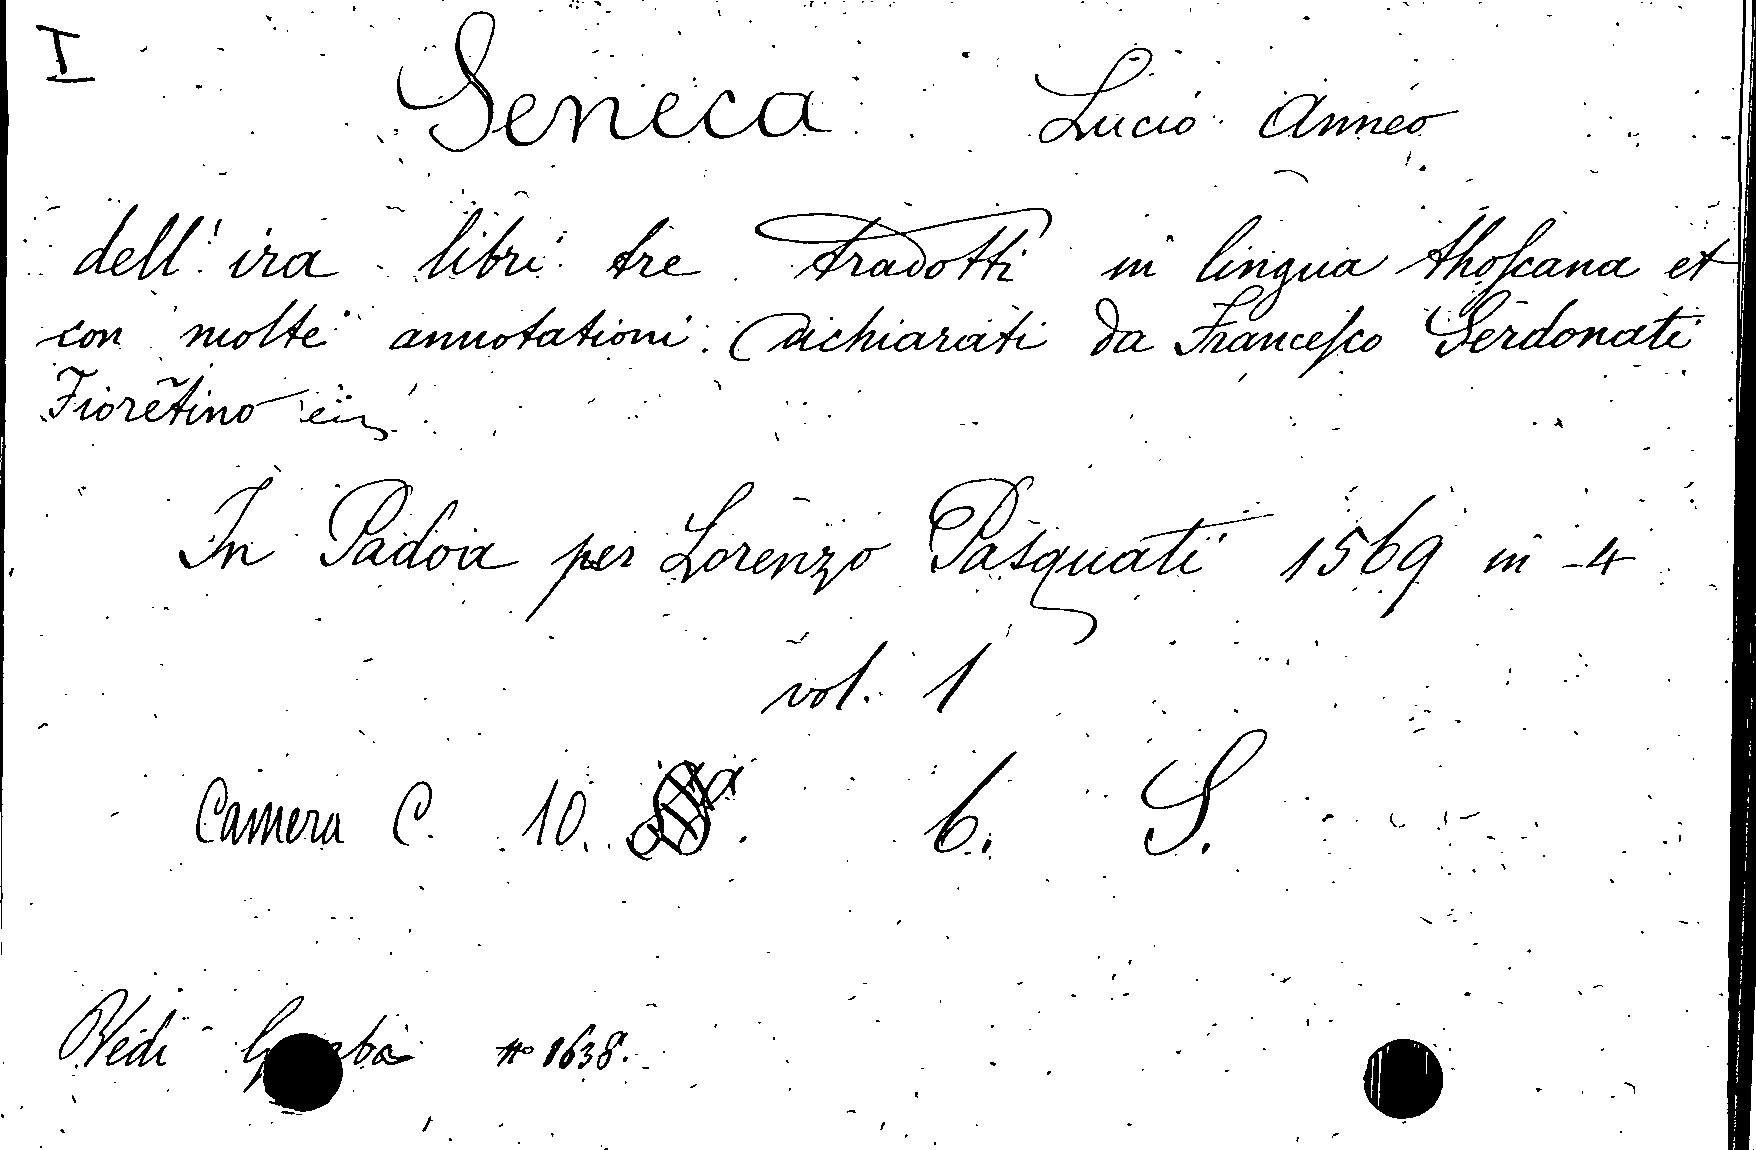 I
Seneca Lucio Anneo
dell' ira libri tre tradotti in lingua thoſcana et
con molte annotationi dichiarati da Franceſco Serdonati
Fiorẽtino
In Padoia per Lorenzo Pasquati 1569 in-4
vol. 1
Camera C. 10. 6. S.
Vedi n° 1638.